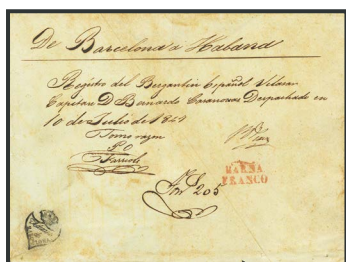 De Barcelona a Habana
Registro del Bergantin Español
Capitan D. Bernardo Casanovas Despachado en
10 de Julio de 1849
Tomo razon
P.O.
Farriols
Nº 205
BAENA
FRANCO